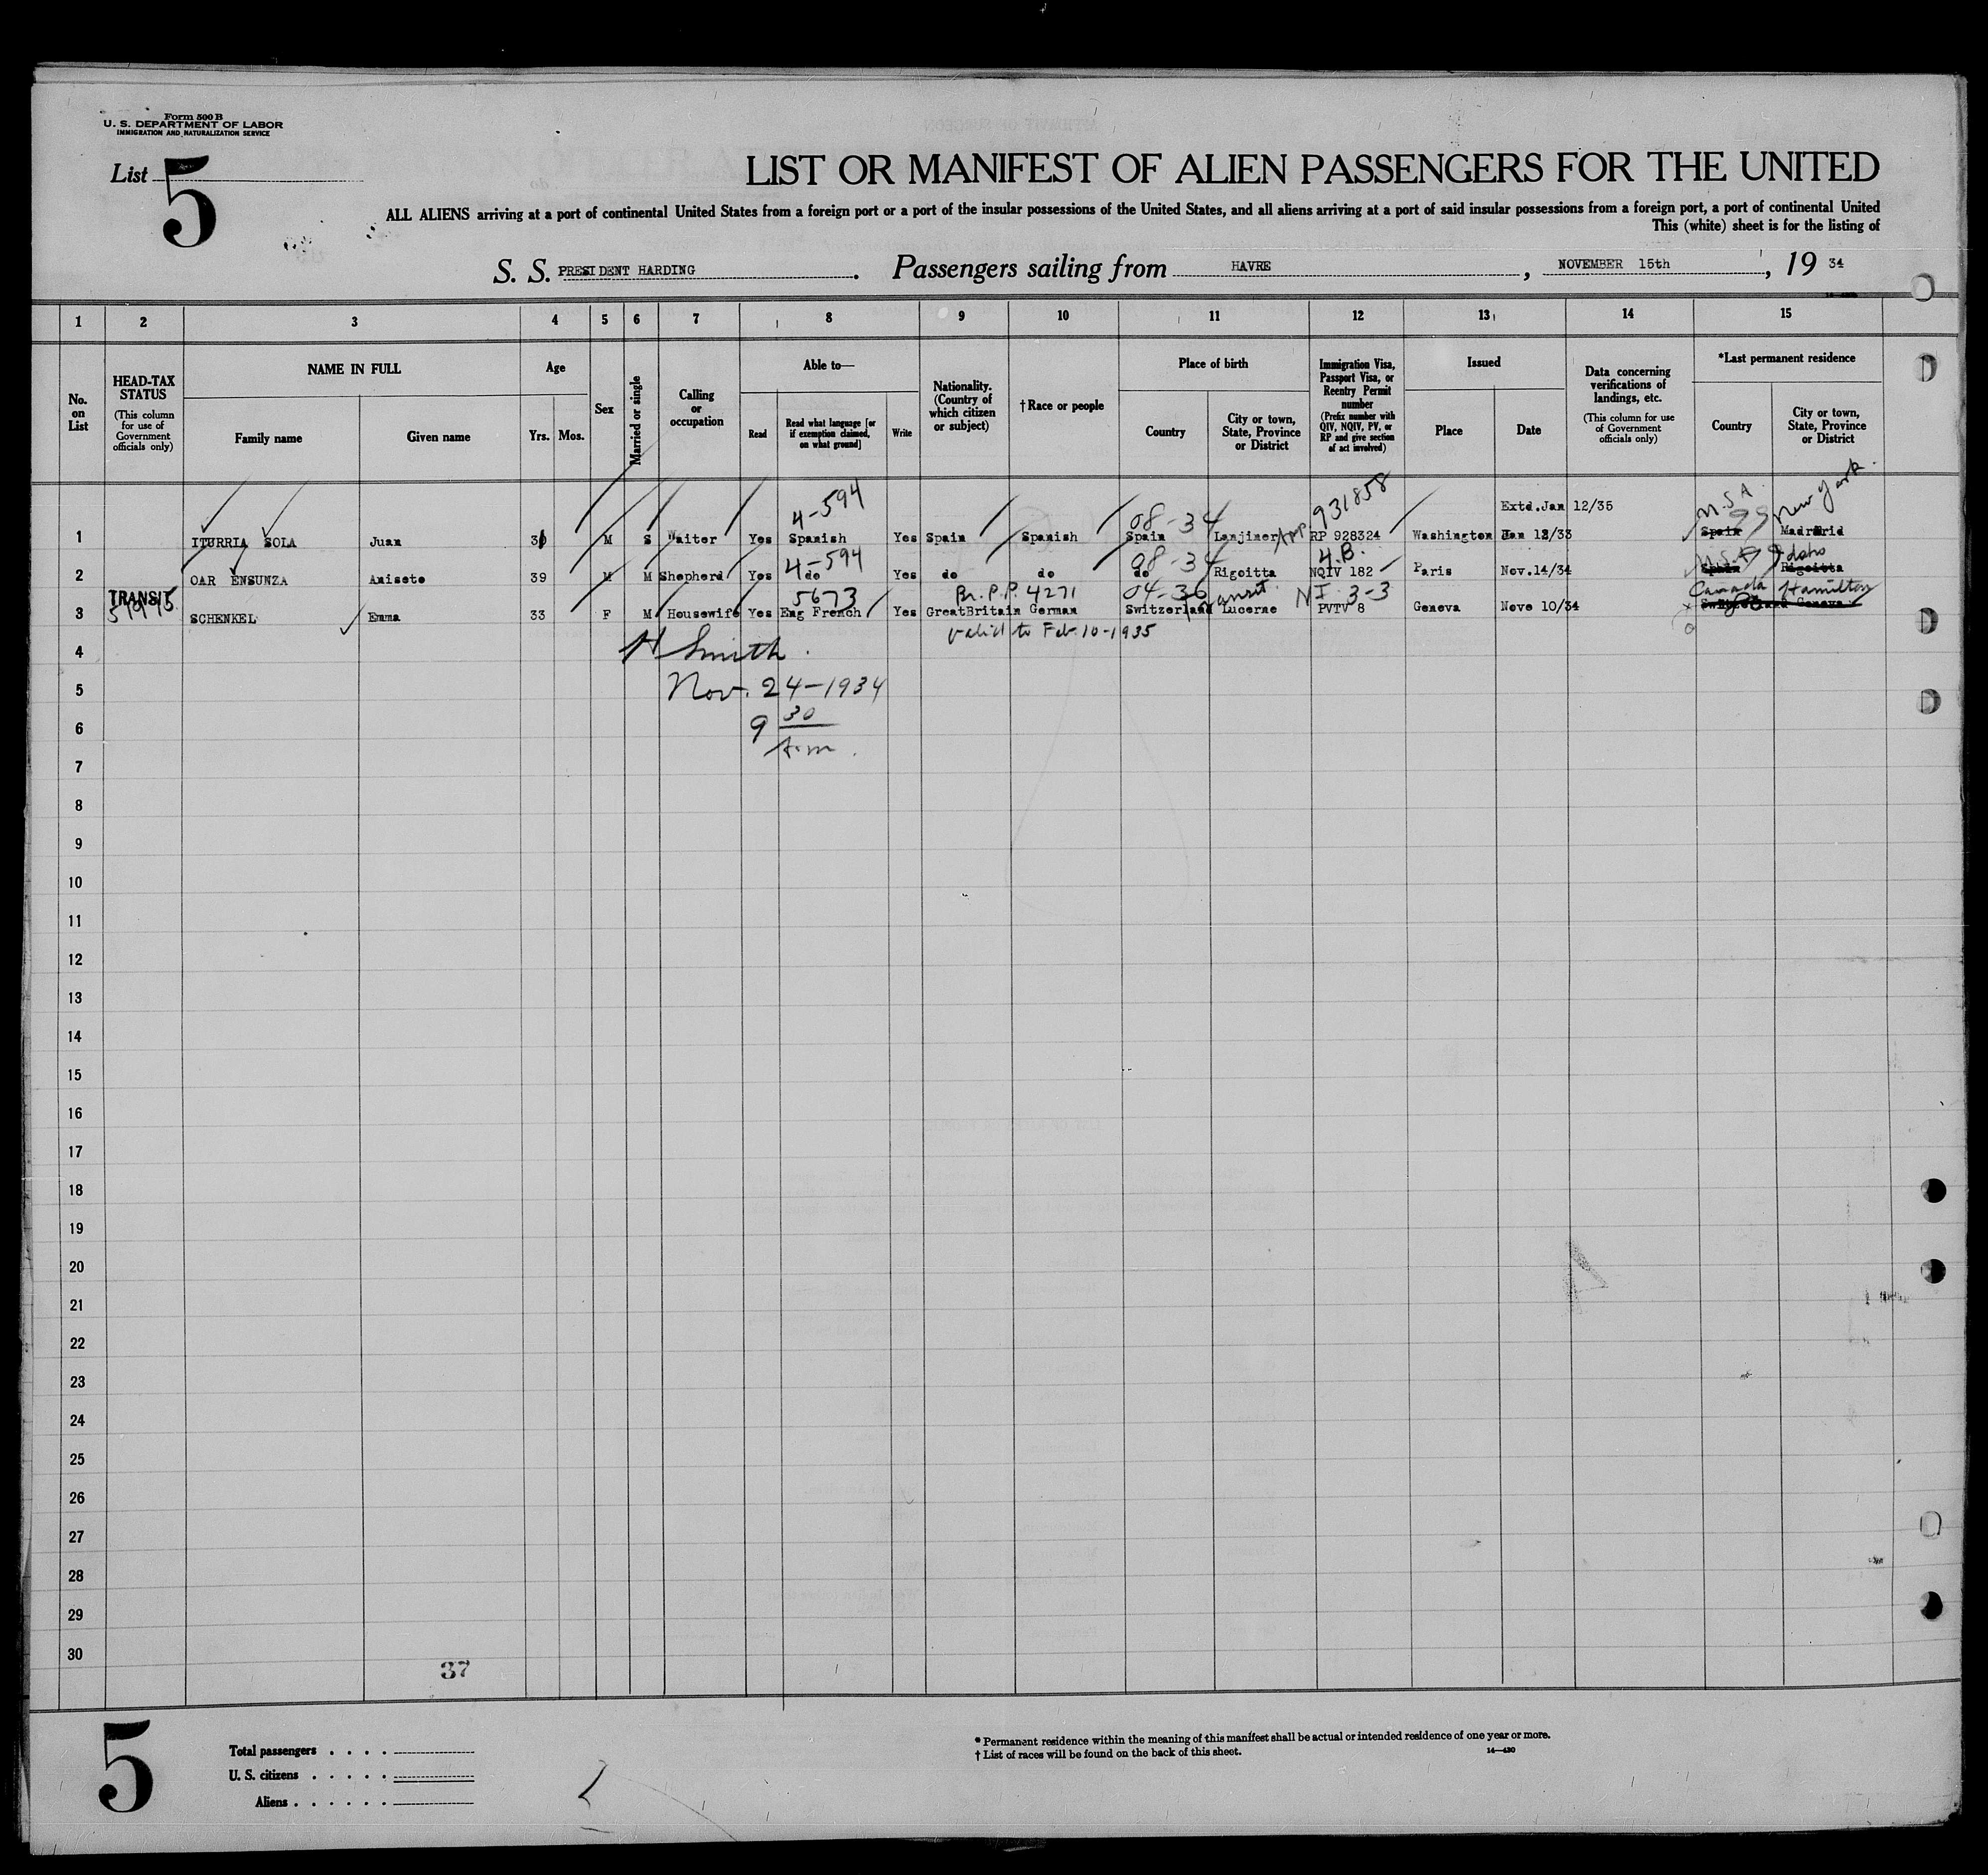 Form 500 B
U. S. DEPARTMENT OF LABOR
IMMIGRATION AND NATURALIZATION SERVICE
List 5
LIST OR MANIFEST OF ALIEN PASSENGERS FOR THE UNITED
ALL ALIENS arriving at a port of continental United States from a foreign port or a port of the insular possessions of the United States, and all aliens arriving at a port of said insular possessions from a foreign port, a port of continental United
This (white) sheet is for the listing of
S. S. PRESIDENT HARDING. Passengers sailing from HAVRE, NOVEMBER 15th, 19 34
1 2 3 4 5 6 7 8 9 10 11 12 13 14 15
No. on List
HEAD-TAX STATUS (This column for use of Government officials only)
NAME IN FULL
Family name
Given name
Age
Yrs. Mos.
Sex
Married or single
Calling or occupation
Able to—
Read
Read what language [or if exemption claimed, on what ground]
Write
Nationality. (Country of which citizen or subject)
† Race or people
Place of birth
Country
City or town, State, Province or District
Immigration Visa, Passport Visa, or Reentry Permit number (Prefix number with QIV, NQIV, PV, or RP and give section of act involved)
Issued
Place
Date
Data concerning verifications of landings, etc. (This column for use of Government officials only)
*Last permanent residence
Country
City or town, State, Province or District
4-594 08-34 931858 Extd.Jan 12/35 New York
1 ITURRIA SOLA Juan M S Waiter Yes Spanish Yes Spain Spanish Spain RP 928324 Washington Spain Madrid
4-594 08-34 H.B. Idaho
2 OAR ENSUNZA Aniseto 39 M M Shepherd Yes do Yes do do do Rigoitta NQIV 182 Paris Nov.14/34 Rigoitta
TRANSIT 5673 Br. P.P. 4271 04-36 transit NI 3-3 Canada Hamilton
3 SCHENKEL Emma 33 F M Housewife Yes Eng French Yes GreatBritain German Switzerland Lucerne PVTV 8 Geneva Nove 10/34
valid to Feb-10-1935
4 H Smith.
5 Nov. 24-1934
6 9 30
A.m.
7
8
9
10
11
12
13
14
15
16
17
18
19
20
21
22
23
24
25
26
27
28
29
30
37
5
Total passengers
U. S. citizens
Aliens
* Permanent residence within the meaning of this manifest shall be actual or intended residence of one year or more.
† List of races will be found on the back of this sheet.
14—430